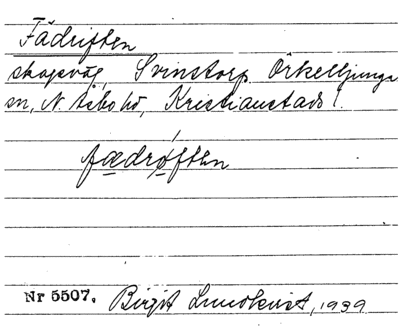 Fädriften
skogsväg, Svinstorp, Örkelljunga
sn, N. Åsbo hd, Kristianstads l.
fædrøften
Nr 5507. Birgit Lundkvist, 1939